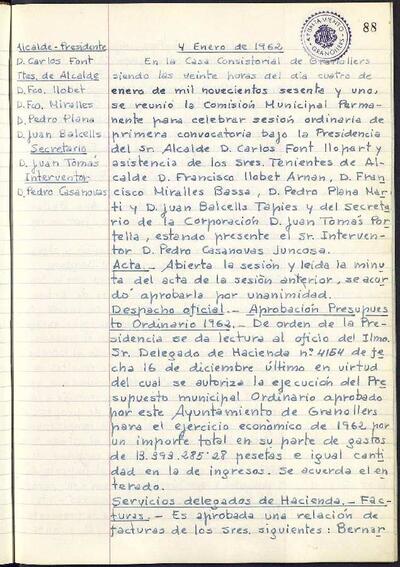 88
AYUNTAMIENTO
GRANOLLERS
Alcalde-Presidente
D. Carlos Font
Ttes. de Alcalde
D. Fco. Llobet
D. Fco. Miralles
D. Pedro Plana
D. Juan Balcells
Secretario
D. Juan Tomás
Interventor
D. Pedro Casanovas
4 Enero de 1962
En la Casa Consistorial de Granollers
siendo las veinte horas del día cuatro de
enero de mil novecientos sesenta y uno,
se reunió la Comisión Municipal Perma-
nente para celebrar sesión ordinaria de
primera convocatoria bajo la Presidencia
del Sr. Alcalde D. Carlos Font Llopart y
asistencia de los Sres. Tenientes de Al-
calde D. Francisco Llobet Arnan, D. Fran
cisco Miralles Bassa, D. Pedro Plana Mar
ti y D. Juan Balcells Tapies y del Secreta
rio de la Corporación D. Juan Tomás Por
tella, estando presente el Sr. Interven-
tor D. Pedro Casanovas Juncosa.
Acta.- Abierta la sesión y leída la minu
ta del acta de la sesión anterior, se acor
dó aprobarla por unanimidad.
Despacho oficial.- Aprobación Presupues
to Ordinario 1962.- De orden de la Pre-
sidencia se da lectura al oficio del Ilmo.
Sr. Delegado de Hacienda nº 4154 de fe
cha 16 de diciembre último en virtud
del cual se autoriza la ejecución del Pre
supuesto municipal Ordinario aprobado
por este Ayuntamiento de Granollers
para el ejercicio económico de 1962 por
un importe total en su parte de gastos
de 13.393.285'28 pesetas e igual canti
dad en la de ingresos. Se acuerda el en
terado.
Servicios delegados de Hacienda.- Fac-
turas.- Es aprobada una relación de
facturas de los Sres. siguientes: Bernar